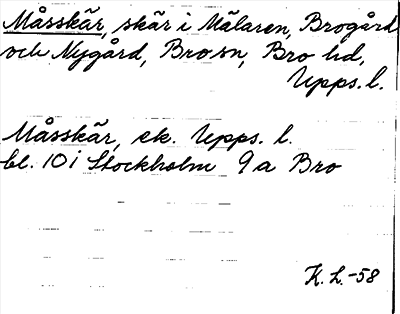 Måsskär, skär i Mälaren, Brogård
och Nygård, Bro sn, Bro hd,
Upps. l.
Måsskär, ek. Upps. l.
bl. 10 i Stockholm 9a Bro
K. L. -58